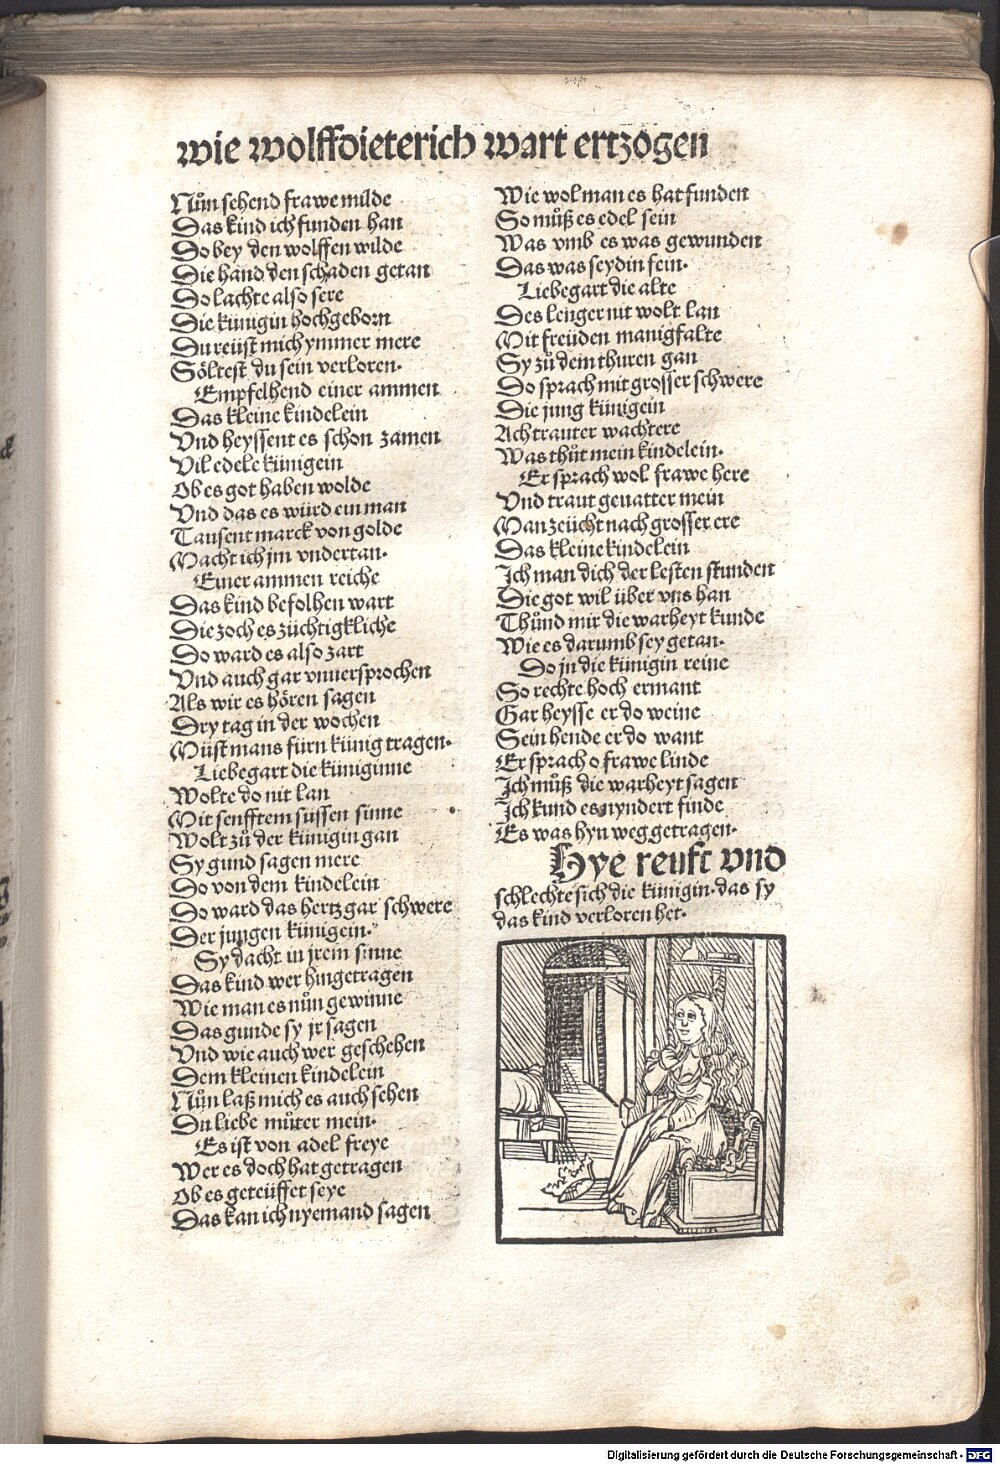 wie wolffdieterich wart ertzogen
Nůn sehend frawe milde
Das kind ich funden han
Do bey den wolffen wilde
Die hand den schaden getan
Do lachte also sere
Die künigin hochgeborn
Du reüst mich ymmer mere
Söltest du sein verloren.
Empfelhend einer ammen
Das kleine kindelein
Vnd heyssent es schon zamen
Vil edele künigein
Ob es got haben wolde
Vnd das es würd ein man
Tausent marck von golde
Macht ich jm vndertan.
Einer ammen reiche
Das kind befolhen wart
Die zoch es züchtigkliche
Do ward es also zart
Vnd auch gar vnuersprochen
Als wir es hören sagen
Dry tag in der wochen
Müst mans fürn künig tragen.
Liebegart die küniginne
Wolte do nit lan
Mit senfftem süssen sinne
Wolt zů der künigin gan
Sy gund sagen mere
Do von dem kindelein
Do ward das hertz gar schwere
Der jungen künigein.
Sy dacht in jrem sinne
Das kind wer hingetragen
Wie man es nůn gewinne
Das gunde sy jr sagen
Vnd wie auch wer geschehen
Dem kleinen kindelein
Nůn laß mich es auch sehen
Du liebe můter mein.
Es ist von adel freye
Wer es doch hat getragen
Ob es geteüffet seye
Das kan ich nyemand sagen
Wie wol man es hat funden
So můß es edel sein
Was vmb es was gewunden
Das was seydin fein.
Liebegart die alte
Des lenger nit wolt lan
Mit freüden manigfalte
Sy zů dem thuren gan
Do sprach mit grosser schwere
Die jung künigein
Ach trauter wachtere
Was thůt mein kindelein.
Er sprach wol frawe here
Vnd traut geuatter mein
Man zeücht nach grosser ere
Das kleine kindelein
Ich man dich der lesten stunden
Die got wil über vns han
Thůnd mir die warheyt kunde
Wie es darumb sey getan.
Do jn die künigin reine
So rechte hoch ermant
Gar heysse er do weine
Sein hende er do want
Er sprach o frawe linde
Ich můß die warheyt sagen
Ich kund es nyndert finde
Es was hyn weg getragen.
Hye reuft vnd
schlechte sich die künigin. das sy
das kind verloren het.
Digitalisierung gefördert durch die Deutsche Forschungsgemeinschaft - DFG